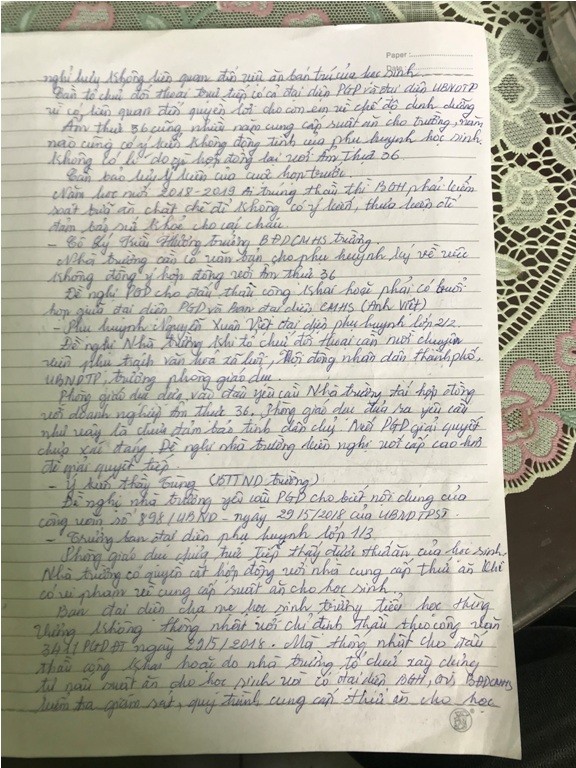 Paper :
Date :
nghỉ hưu không liên quan đến việc ăn bán trú của học sinh.
Cần tổ chức đối thoại trực tiếp có cả đại diện PGD và đại diện UBNDTP
vì có liên quan đến quyền lợi cho con em về chế độ dinh dưỡng
Ẩm thực 36 cũng nhiều năm cung cấp suất ăn cho trường, năm
nào cũng có ý kiến không đồng tình của phụ huynh học sinh.
Không có lí do gì hợp đồng lại với Ẩm Thực 36.
Cần bảo lưu ý kiến của cuộc họp trước.
Năm học mới 2018-2019 Ai trúng thầu thì BGH phải kiểm
soát bữa ăn chặt chẽ để không có ý kiến, thưa kiện để
đảm bảo sức khỏe cho các cháu.
- Cô Lý Trần Phương trưởng BĐDCMHS trường.
Nhà trường cần có văn bản cho phụ huynh ký về việc
không đồng ý hợp đồng với Ẩm thực 36
Đề nghị PGD cho đấu thầu công khai hoặc phải có buổi
họp giữa đại diện PGD và Ban đại diện CMHS (Anh Việt)
- Phụ huynh Nguyễn Xuân Việt đại diện phụ huynh lớp 2/2.
Đề nghị Nhà trường khi tổ chức đối thoại cần mời chuyên
viên phụ trách văn hoá xã hội, Hội đồng nhân dân thành phố,
UBNDTP, trưởng phòng giáo dục.
Phòng giáo dục vẫn yêu cầu Nhà trường tái hợp đồng
với doanh nghiệp Ẩm thực 36. Phòng giáo dục đưa ra yêu cầu
như vậy là chưa đảm bảo tính dân chủ. Nếu PGD giải quyết
chưa xác đáng. Đề nghị nhà trường kiến nghị với cấp cao hơn
để giải quyết tiếp.
- Ý kiến thầy Trung (BTTND trường)
Đề nghị nhà trường yêu cầu PGD cho biết nội dung của
công văn số 898/UBND - ngày 29/5/2018 của UBNDTPST.
- Trưởng ban đại diện phụ huynh lớp 1/3
Phòng giáo dục chưa trực tiếp thấy được thức ăn của học sinh,
Nhà trường có quyền cắt hợp đồng với nhà cung cấp thức ăn khi
có vi phạm về cung cấp suất ăn cho học sinh.
Ban đại diện cha mẹ học sinh trường tiểu học Hùng
Vương không thống nhất với chỉ định thầu theo công văn
PGDĐT ngày 29/5/2018. Mà thống nhất cho đấu
thầu công khai hoặc do nhà trường tổ chức xây dựng
tự nấu suất ăn cho học sinh với có đại diện BGH, BĐDCMHS
kiểm tra giám sát, quy trình cung cấp thức ăn cho học